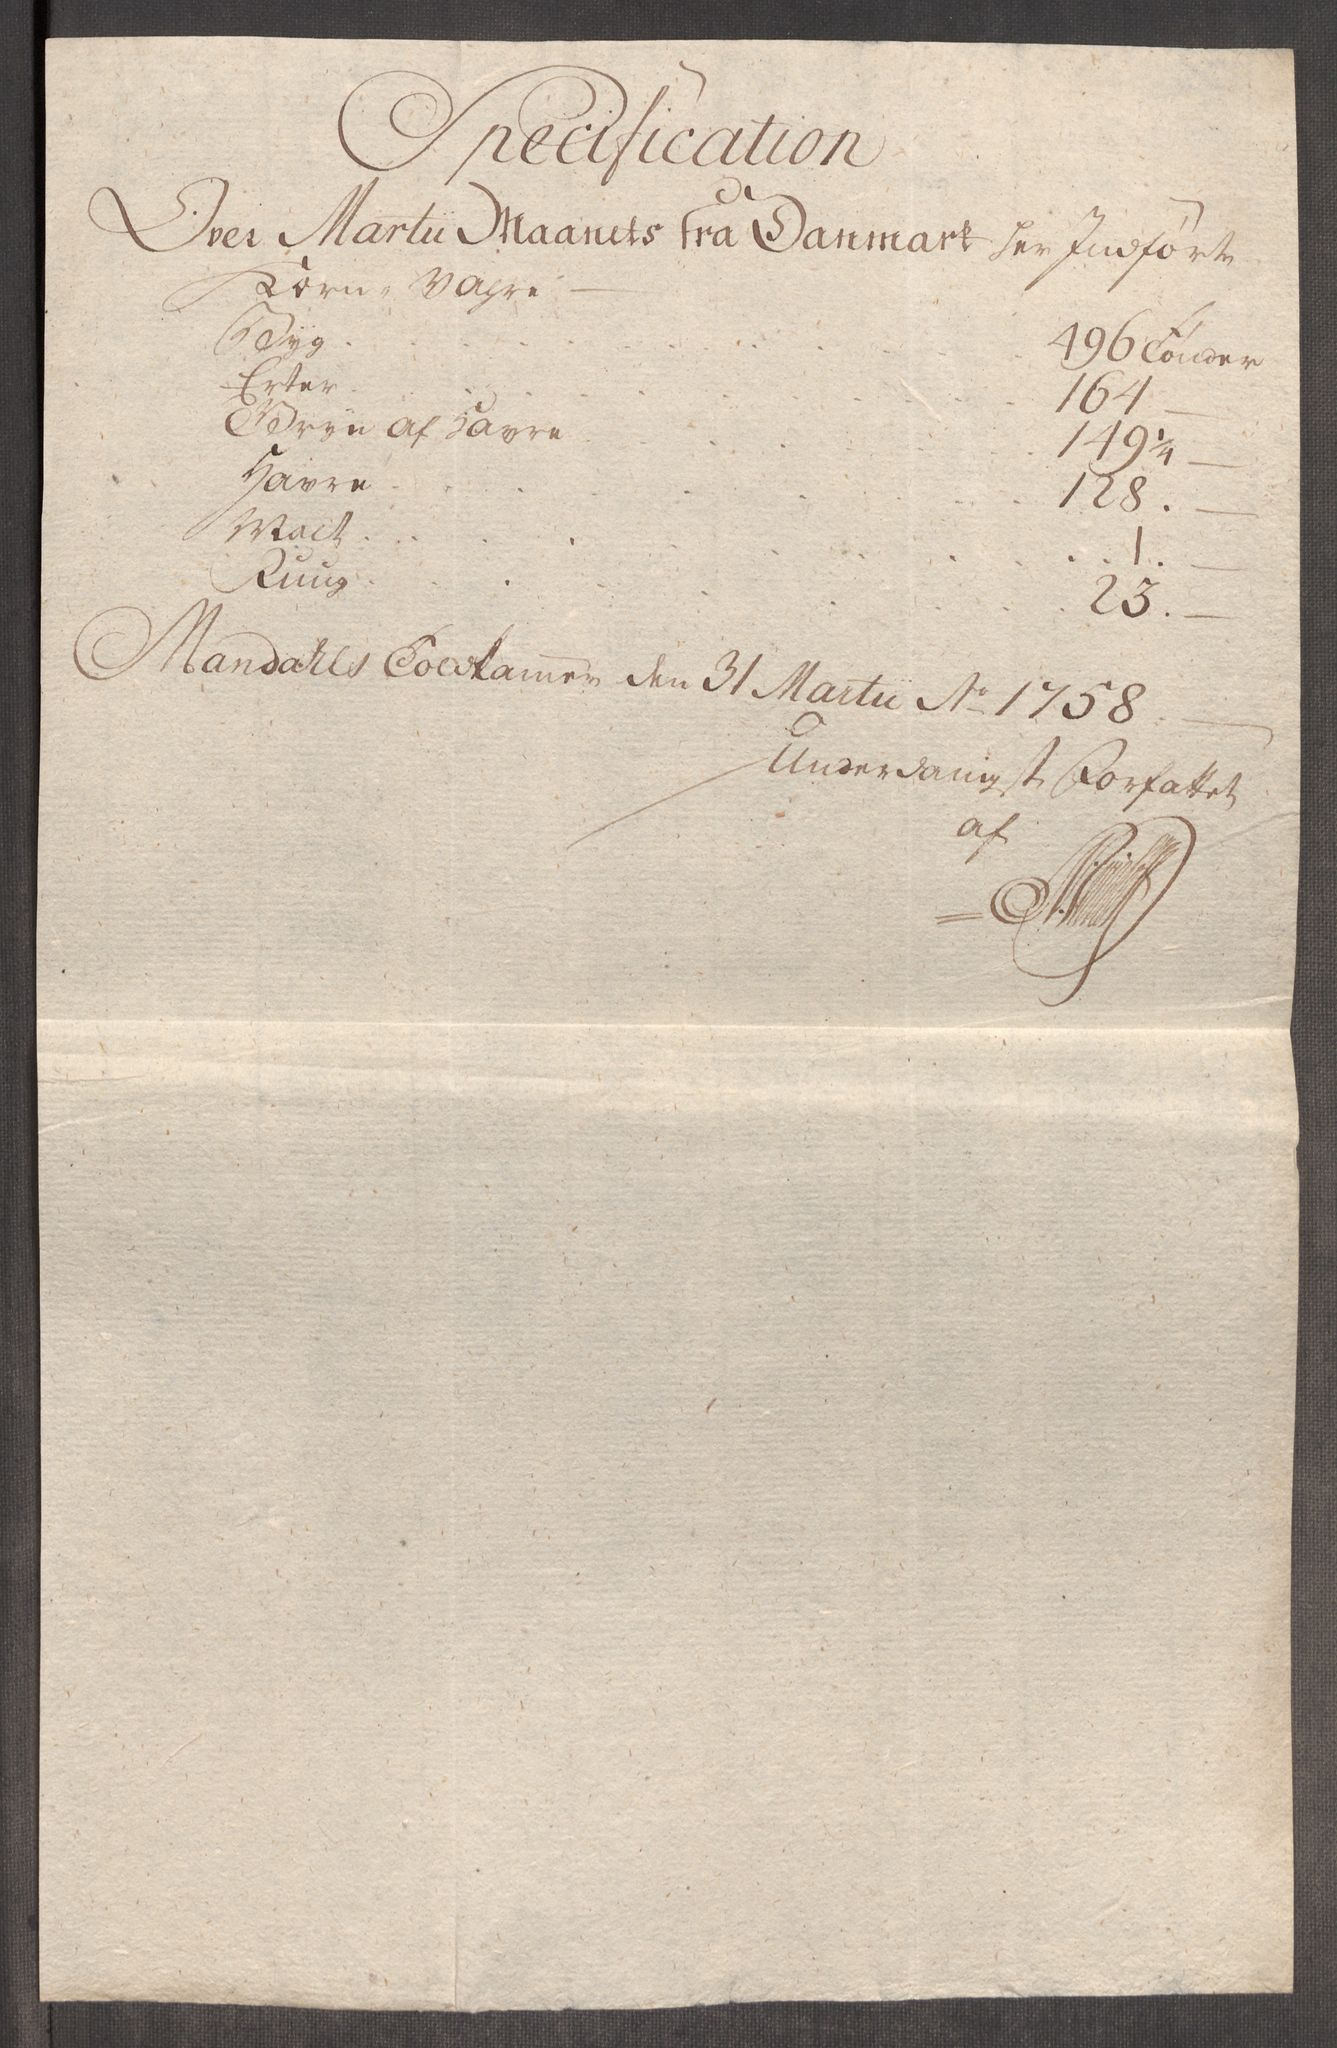 Specification
Over Martii Maanets fra Danmark her Indførte
Korn-Vahre
Byg 496 Tønder
Erter 164 —
Gryn af Havre 149 1/4 —
Havre 128. —
Malt 1. —
Ruug 23. —
Mandahls Toldkamer den 31 Martii Ao 1758
Underdanigst Forfattet
af